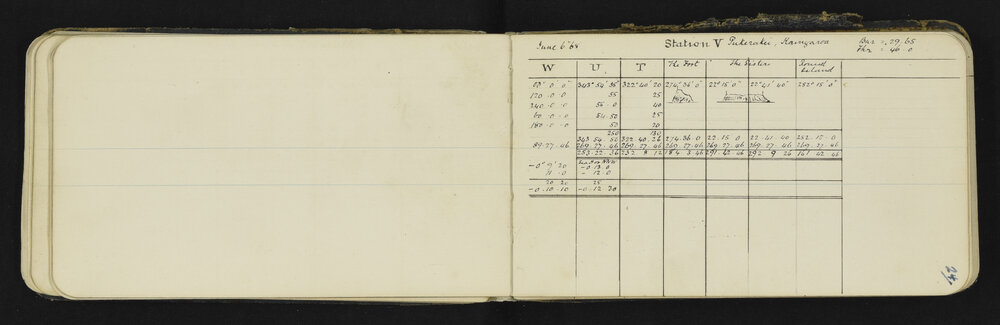 June 6 '68 Station V Pukerakei, Kaingaroa Bar = 29.65
Thr = 46.0
W U T The Fort The Sisters Round Island
00° 0' 0" 343° 54' 35" 322° 40' 20 274° 36' 0" 22° 15' 0" 22° 41' 40" 252° 15' 0"
120 . 0 . 0 55 25
240 . 0 . 0 55 . 0 40
60 . 0 . 0 54 . 50 25
180 . 0 . 0 50 20
250 130
343 . 54 . 50 322 . 40 . 26 274 . 36 . 0 22 . 15 . 0 22 . 41 . 40 252 . 15 . 0
89 . 27 . 46 269 . 27 . 46 269 . 27 . 46 269 . 27 . 46 269 . 27 . 46 269 . 27 . 46 269 . 27 . 46
253 . 22 . 36 232 8 12 184 . 3 . 46 291 . 42 . 46 292 . 9 . 26 161 . 42 . 46
-0° 9' 20 -0 . 13 . 0
11 . 0 - 12 . 0
20 20 25
-0 . 10 . 10 -0 . 12 . 30
24